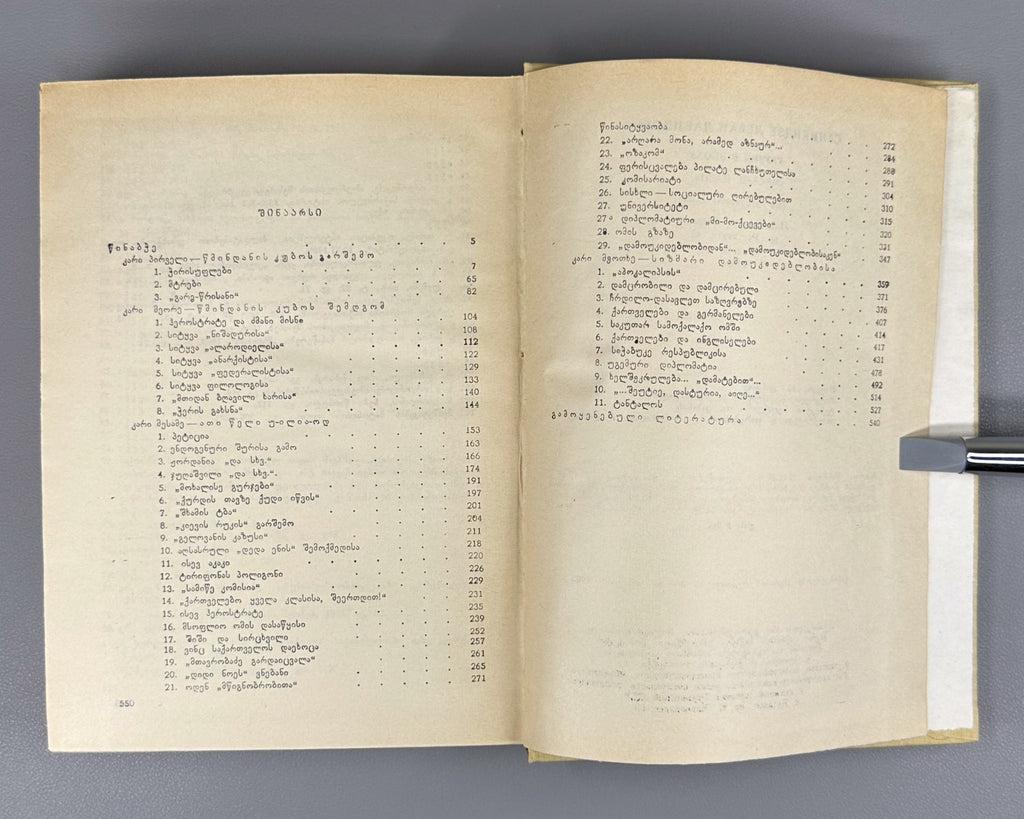 შინაარსი
წინაბჭე 5
კარი პირველი — წმინდანის კუბოს გარშემო
1. ჭირისუფლები 7
2. მტრები 65
3. „გარე-წრისანი“ 82
კარი მეორე — წმინდანის კუბოს შემდგომ
1. ჰეროსტრატე და ძმანი მისნი 104
2. სიტყვა „ნიშადურისა“ 108
3. სიტყვა „ალაროდიელისა“ 112
4. სიტყვა „ანარქისტისა“ 122
5. სიტყვა „ფედერალისტისა“ 129
6. სიტყვა ფილოლოგისა 133
7. „მთიდან ბღავილი ხარისა“ 140
8. „ჭერის გახსნა“ 144
კარი მესამე — ათი წელი უ-ილია-ოდ
1. პეტიცია 153
2. ენდოგენური შურისა გამო 163
3. ჟორდანია „და სხვ.“ 166
4. ჯუღაშვილი „და სხვ.“. 174
5. „მოხალისე გურჯები“ 191
6. „ქურდის თავზე ქუდი იწვის“ 197
7. „შხამის ტბა“ 201
8. „კიევის რუკის“ გარშემო 204
9. „გელოვანის კაზუსი“ 211
10. აღსასრული „დედა ენის“ შემოქმედისა 218
11. ისევ აკაკი 220
12. ტირიფონას პოლიგონი 226
13. „სამიწე კომისია“ 229
14. „ქართველებო ყველა კლასისა, შეერთდით!“ 231
15. ისევ ჰეროსტრატე 235
16. მსოფლიო ომის დასაწყისი 239
17. შიში და სირცხვილი 252
18. ვინც საქართველოს დაეხოცა 257
19. „მთავრობაძე გარდაიცვალა“ 261
20. „დიდი ნოეს“ ვნებანი 265
21. ოდენ „მწიგნობრობითა“ 271
550
წინასიტყვაობა
22. „არღარა მონა, არამედ აზნაურ“... 272
23. „ოზაკომ“ 284
24. ფერისცვალება პილატე ლანჩხუთელისა 288
25. კომისარიატი 291
26. სისხლი — სოციალური ღირებულებით 304
27. უნივერსიტეტი 310
27ა დიპლომატიური „მი-მო-ქცევები“ 315
28. ომის გზაზე 320
29. „დამოუკიდებლობიდან“... „დამოუკიდებლობისაკენ“ 331
კარი მეოთხე — სიზმარი დამოუკიდებლობისა 347
1. „აპოკალიპსის“
2. დამცრობილი და დამცირებული 359
3. ჩრდილო-დასავლეთ საზღვრებზე 371
4. ქართველები და გერმანელები 376
5. საკუთარ სამოქალაქო ომში 407
6. ქართველები და ინგლისელები 414
7. სიჭაბუკე რესპუბლიკისა 417
8. უგემური დიპლომატია 431
9. ხელშეკრულება... „დამატებით“... 478
10. „...შეუტიე, დასტურია, აიღე...“ 492
11. ტანტალოს 514
527
გამოყენებული ლიტერატურა 540